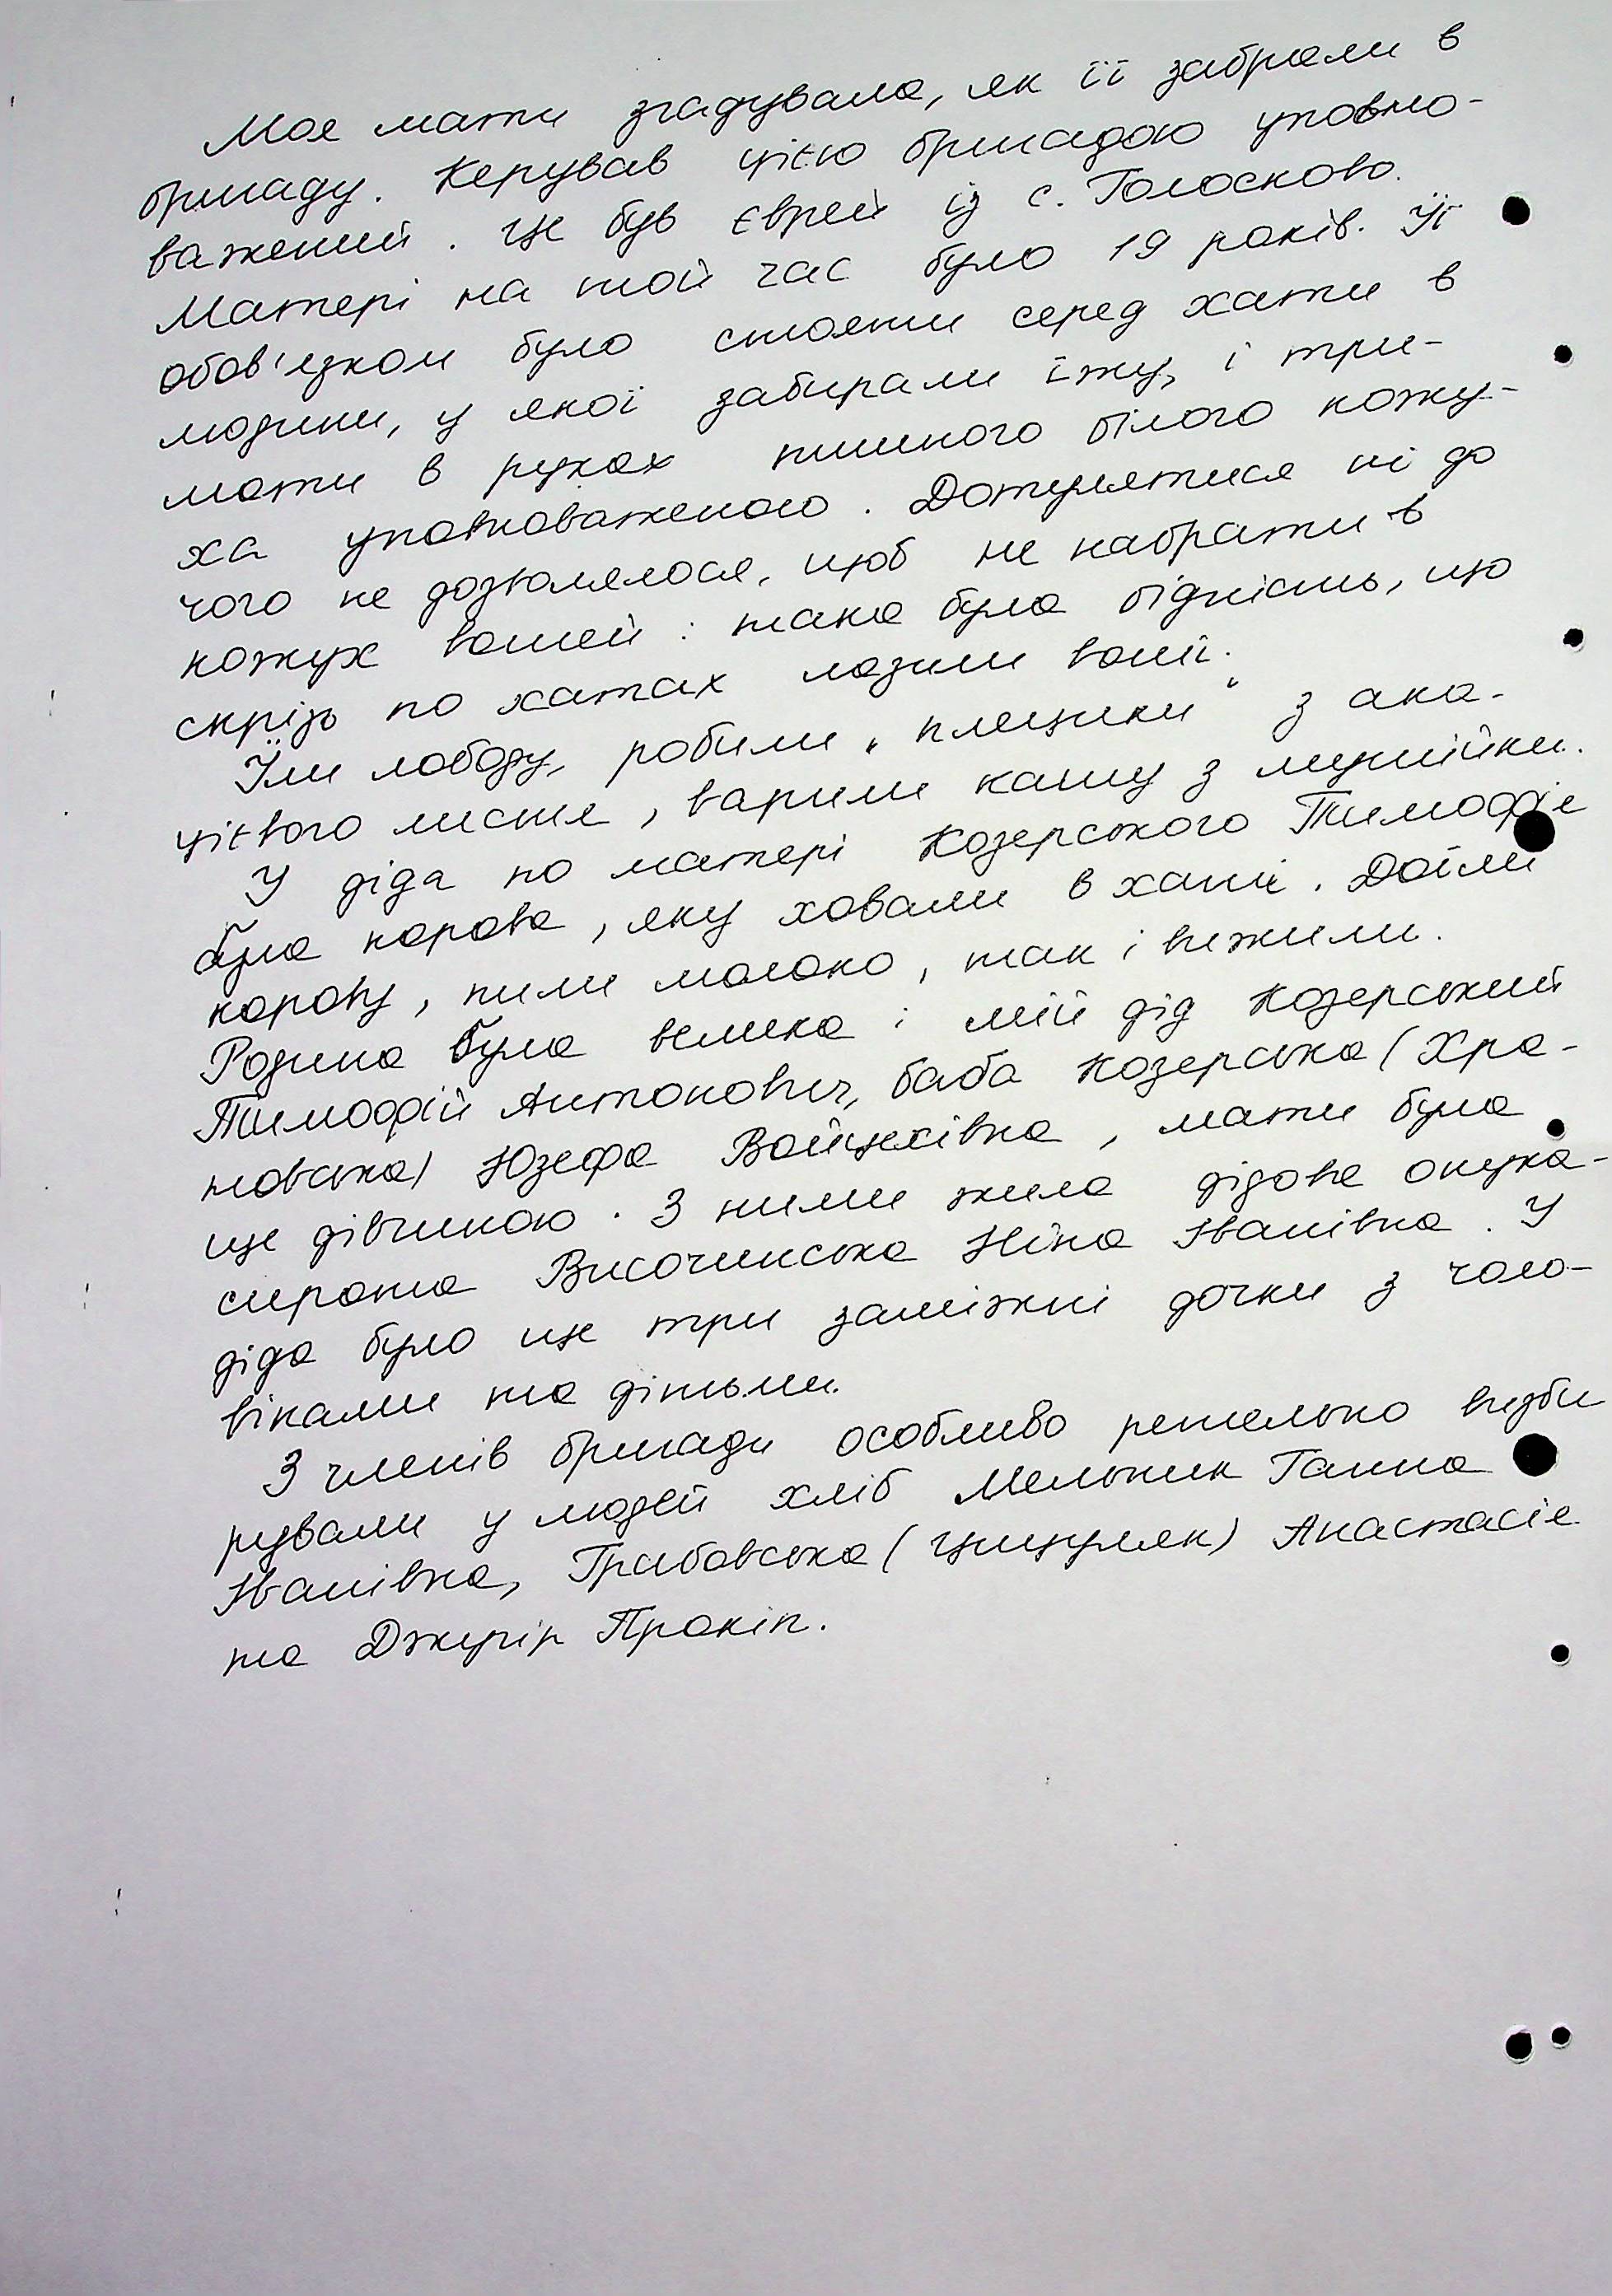 Моя мати згадувала, як її забрали в
бригаду. Керував цією бригадою уповно-
важений. Це був єврей із с. Голосково.
Матері на той час було 19 років. Її
обов'язком було стояти серед хати в
людини, у якої забирали їжу, і три-
мати в руках пишного білого кожу-
ха уповноваженого. Дотулятися ні до
чого не дозволялося, щоб не набрати в
кожух вошей : така була бідність, що
скрізь по хатах лазили воші.
Їли лободу, робили „плецики“ з ака-
цієвого листя, варили кашу з мишійки.
У діда по матері Козерського Тимофія
була корова, яку ховали в хаті. Доїли
корову, пили молоко, так і вижили.
Родина була велика : мій дід Козерський
Тимофій Антонович, баба Козерська (Хра-
новська) Юзефа Войцехівна, мати була
ще дівчиною. З ними жила дідова онука-
сирота Височинська Ніна Іванівна. У
діда було ще три заміжні дочки з чоло-
віками та дітьми.
З членів бригади особливо ретельно визби
рували у людей хліб Мельник Ганна
Іванівна, Грабовська (Цицуляк) Анастасія
та Джурір Прокіп.